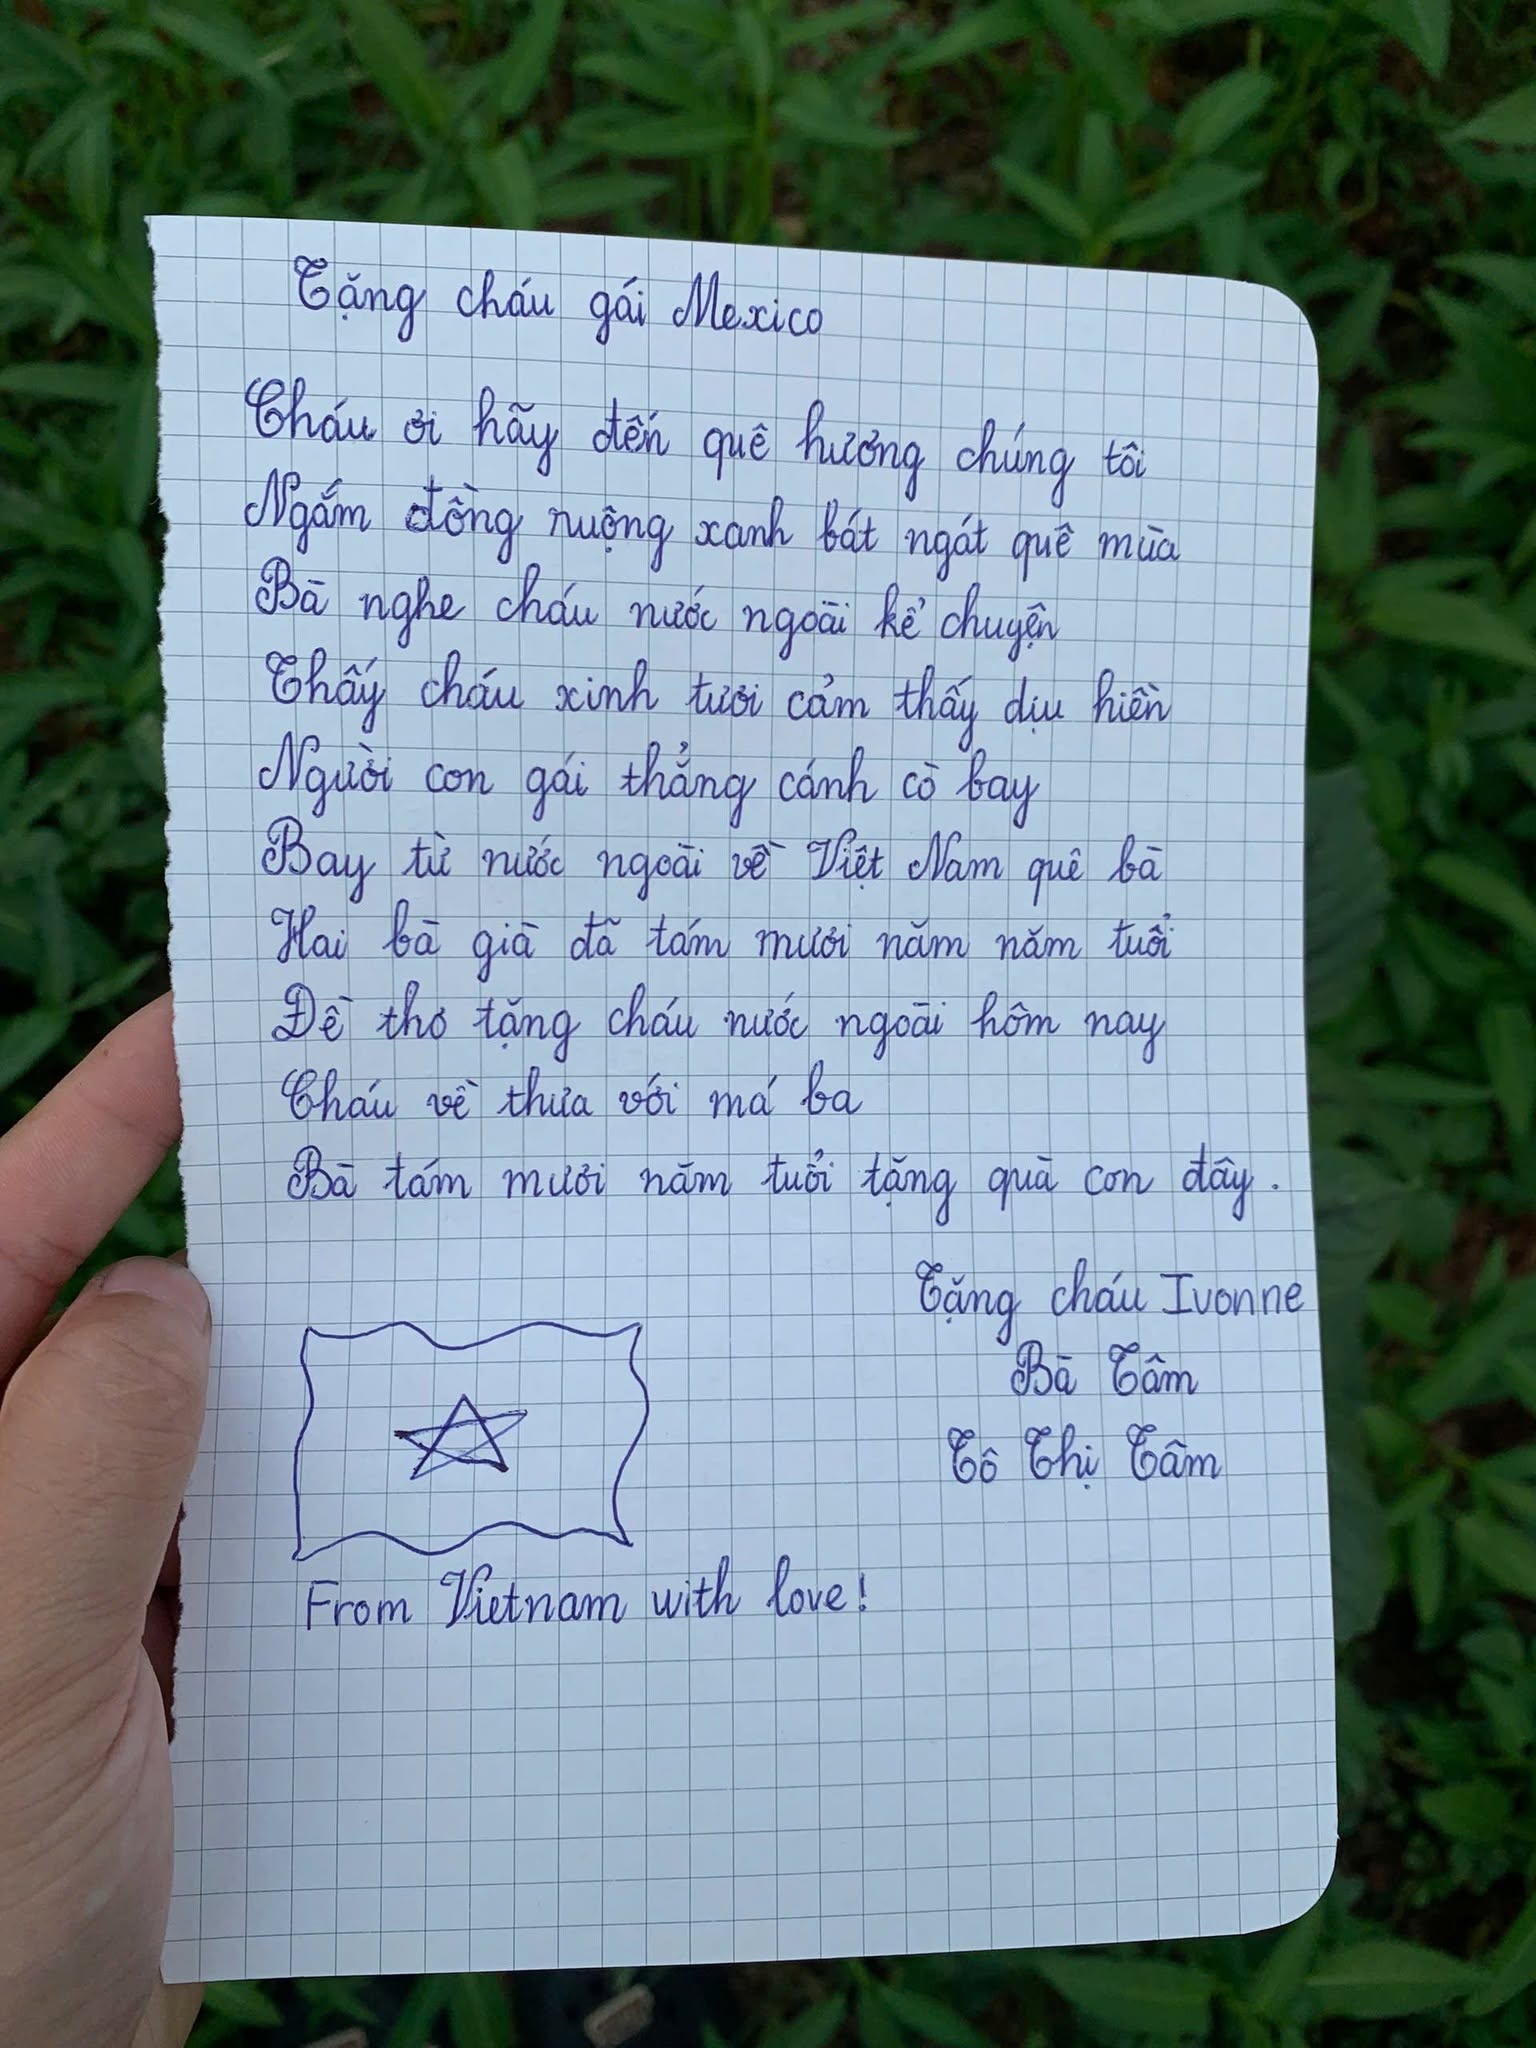 Tặng cháu gái Mexico
Cháu ơi hãy đến quê hương chúng tôi
Ngắm đồng ruộng xanh bát ngát quê mùa
Bà nghe cháu nước ngoài kể chuyện
Thấy cháu xinh tươi cảm thấy dịu hiền
Người con gái thẳng cánh cò bay
Bay từ nước ngoài về Việt Nam quê bà
Hai bà già đã tám mươi năm năm tuổi
Đề thơ tặng cháu nước ngoài hôm nay
Cháu về thưa với má ba
Bà tám mươi năm tuổi tặng quà con đây.
Tặng cháu Ivonne
Bà Tâm
Tô Thị Tâm
From Vietnam with love!